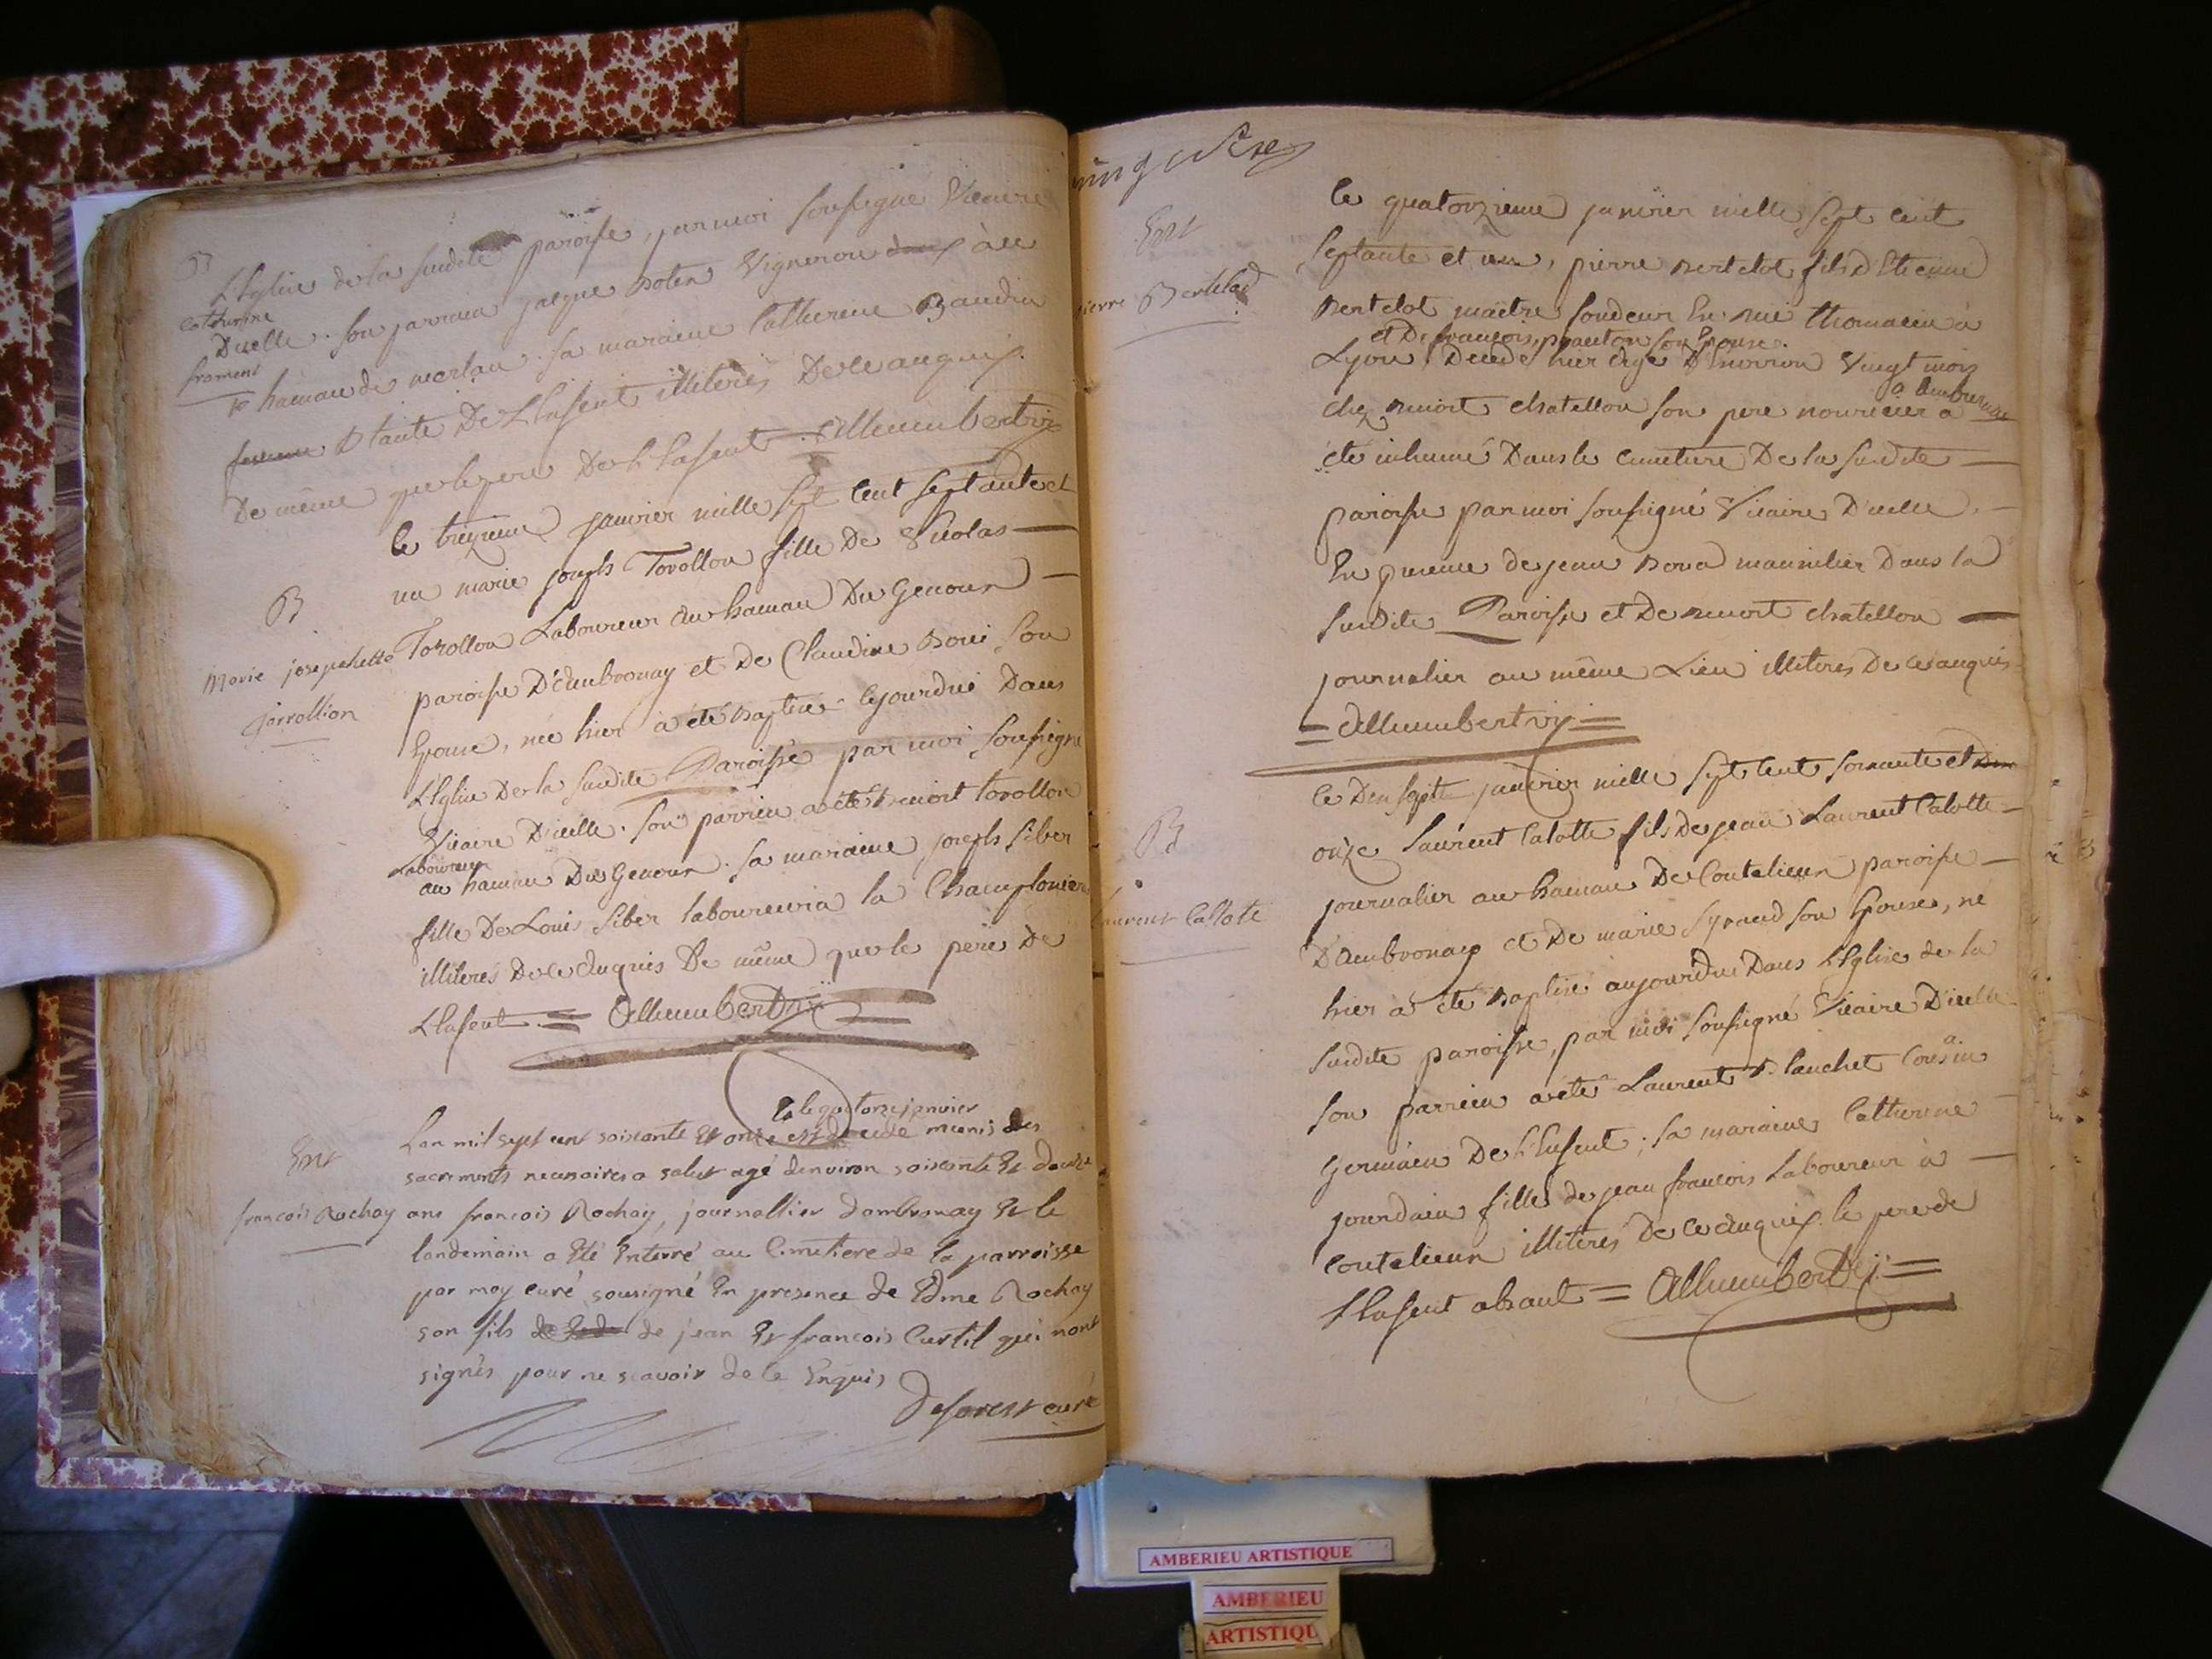 B
catherine
froment
L'Eglise de la susdite paroisse, par moi soussigné Vicaire
D'icelle. son parrain jacque Vigneron au
hameau de merlan. sa maraine Catherine Baudin
tante De L'Enfent illiterés De ce anquis
De même que le pere De L'Enfent. Allumbert vic
B
Marie josephette
jorrollion
le treizieme janvier mille sept cent septante et
un marie joseph Torollon fille De Nicolas
Torollon Laboureur au hameau Du Genoux
paroisse D'Ambronay et De Claudine Boui son
Epouse, née hier a été baptisée cejourdui Dans
L'Eglise De la susdite Paroisse par moi soussigné
Vicaire D'icelle. son parrin a été benoit torollon
Laboureur
au hameau Du Genoux. sa maraine joseph siber
fille De Loui siber laboureur a la Champlonier
illiterés De ce Anquis De même que le pere De
L'Enfent = Allumbert vic =
Ent
francois Rochay
le quatorze janvier
Lan mil sept cent soixante Et onze est decede munis des
sacrements necessaires a salut agé denviron soixante Et douze
ans francois Rochay, journallier dambronay Et le
landemain a Eté Enterré au Cimetiere de la parroisse
par moy curé sousigné En presence de Edme Rochay
son fils de jean Et francois Curtil qui nont
signés pour ne scavoir de ce Enquis
Deforest curé
Ent
pierre Bertelod
le quatorzieme janvier mille sept cent
septante et un, pierre bertelot fils D'Etienne
bertelot maître fondeur En rue thomassin a
et De francoise planton son Epouse
Lyon, Decedé hier agé D'Environ Vingt mois
a Ambronay
chez benoit chatellon son pere nouricier a
été inhumé Dans le cimetiere De la susdite
paroisse par moi soussigné Vicaire D'icelle.
En presence de jean bona manilier Dans la
susdite Paroisse et De benoit chatellon
journalier au même Lieu illiteres De ce anquis
= Allumbert vic =
B
Laurent Callote
le Dix sept janvier mille sept cent soixante et
onze Laurent Calotte fils De jean Laurent Calotte
journalier au hameau De Coutelieux paroisse
D'ambronay et De marie Syraud son Epouse, né
hier a été baptisé aujourdui Dans L'Eglise de la
susdite paroisse, par moi soussigné Vicaire D'icelle
son parrein a été Laurent blanchet Cousin
Germain De L'Enfent ; sa maraine Catherine
jourdain fille de jean francois Laboureur a
Coutelieux illiterés De ce Anquis le pere de
L'Enfent absent = Allumbert vic =
AMBERIEU ARTISTIQUE
AMBERIEU
ARTISTIQU